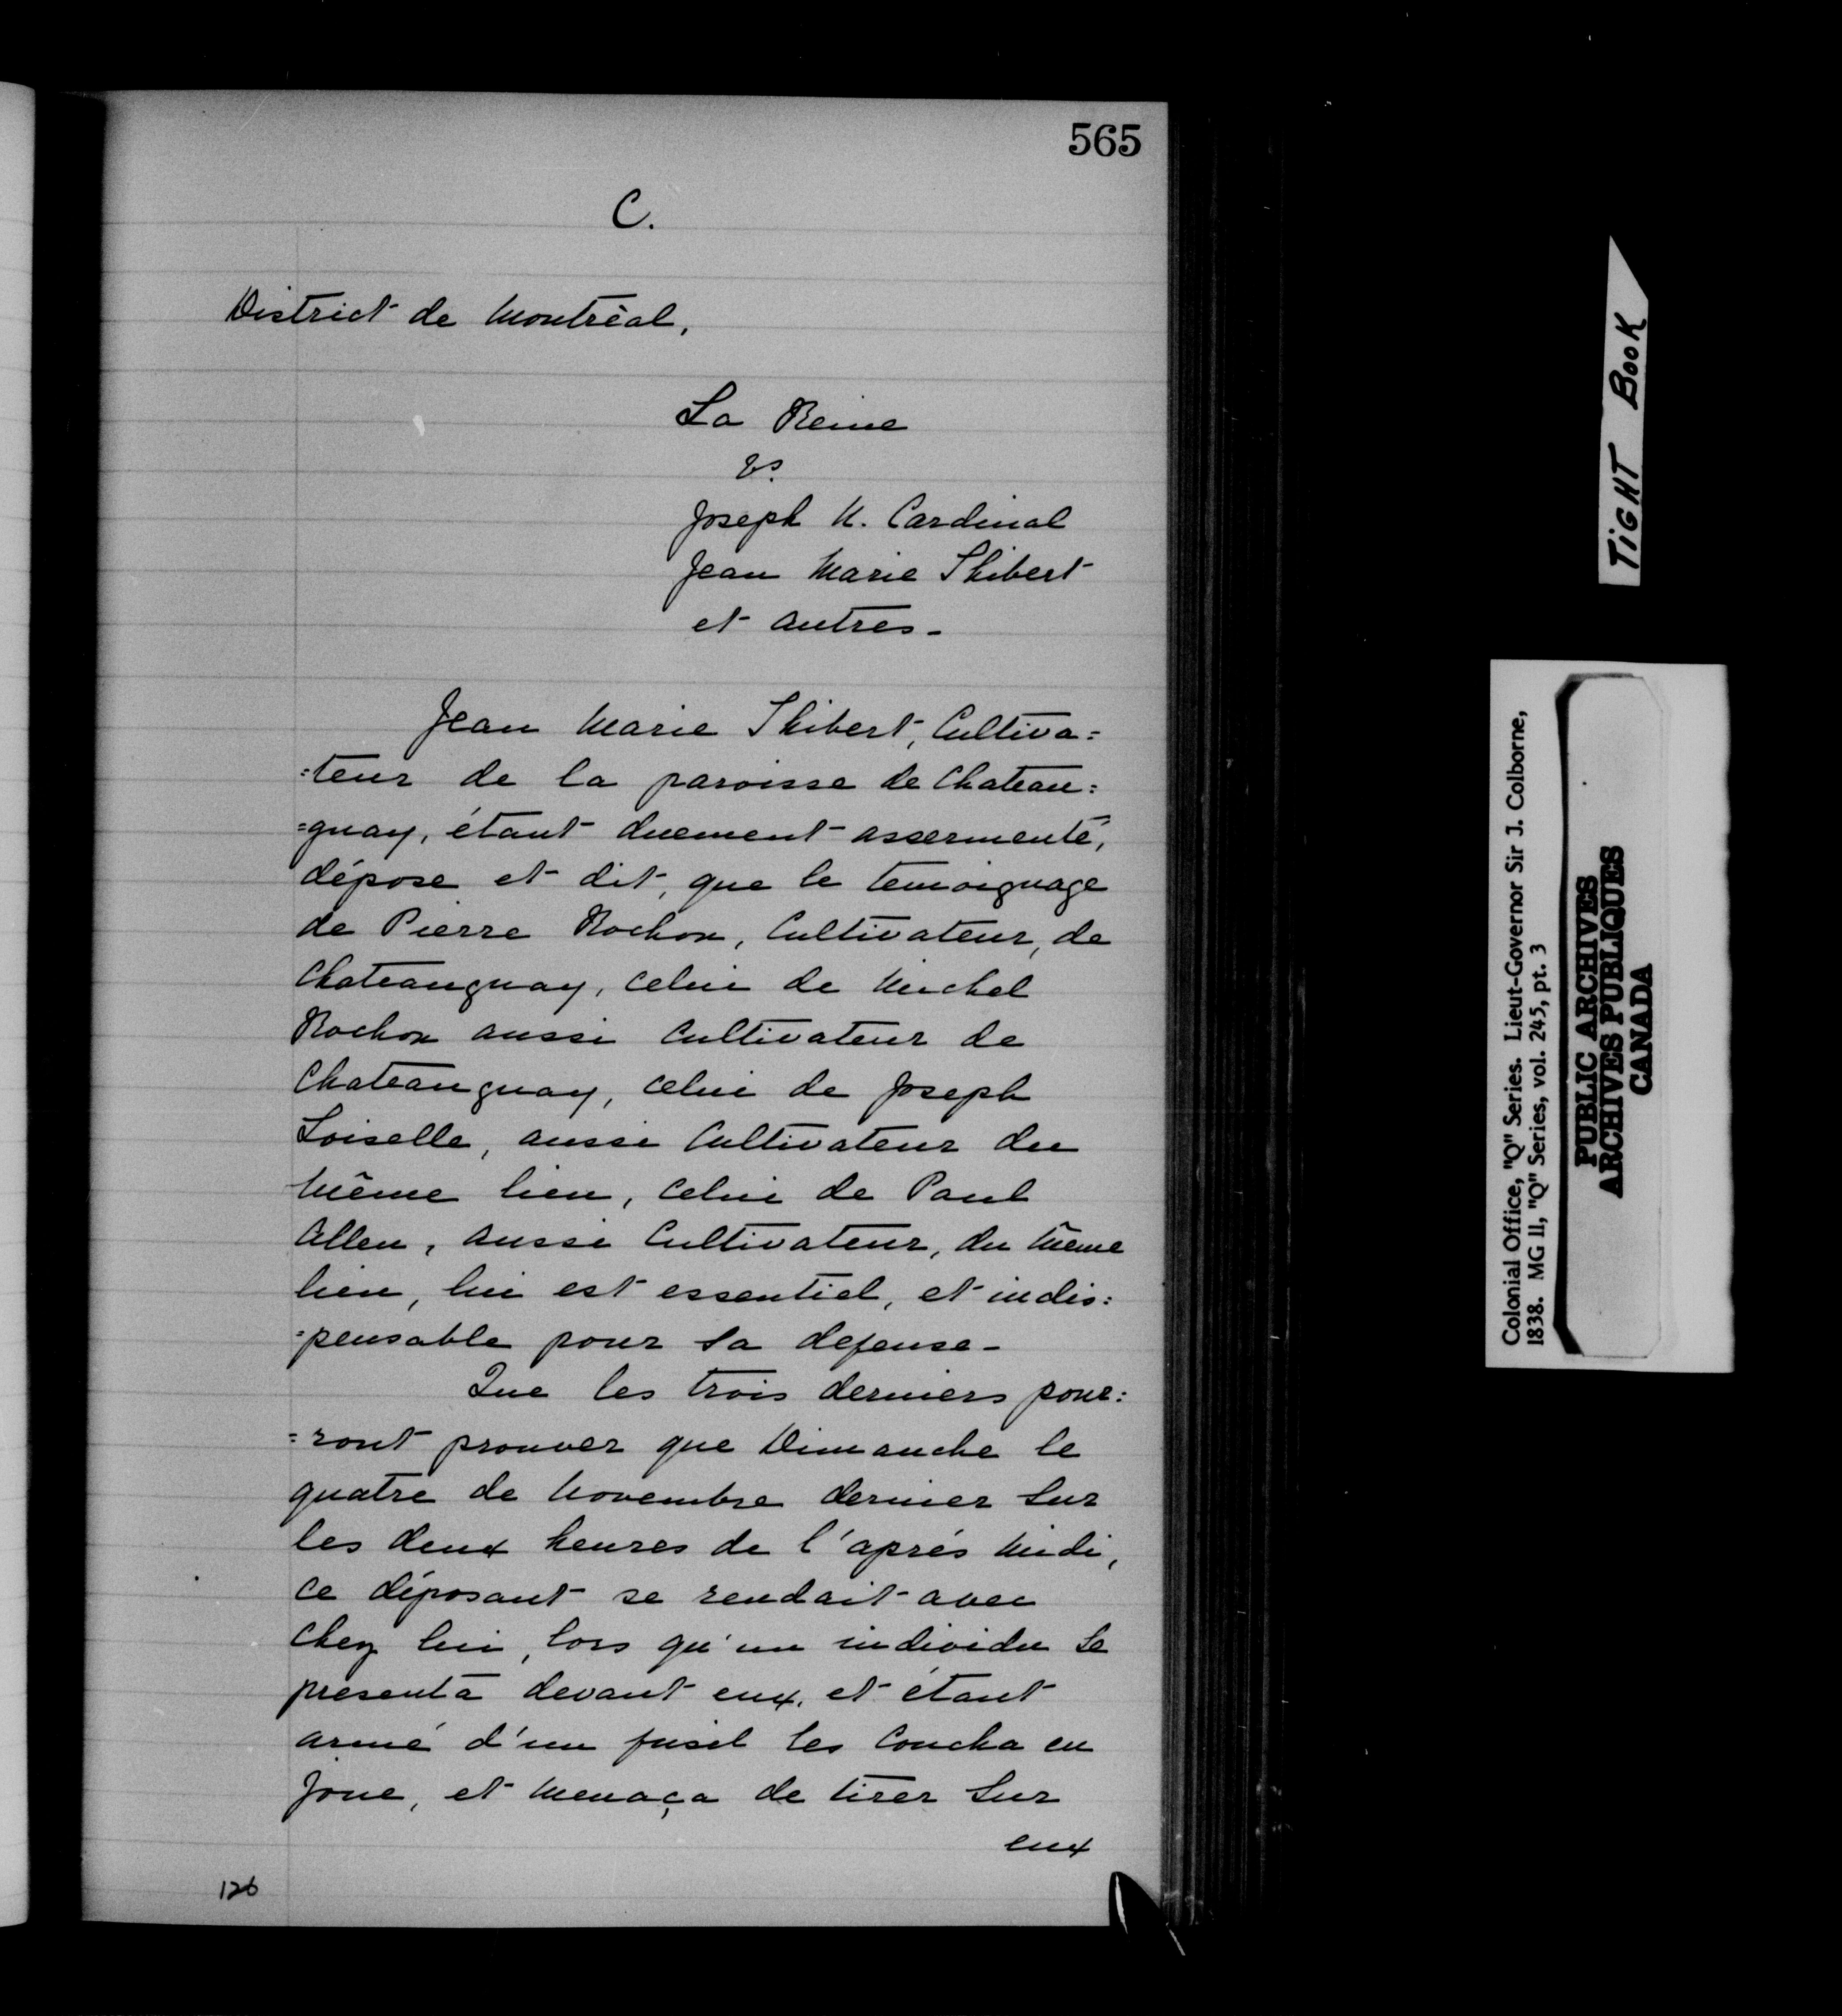 565
C.
District de Montréal,
La Reine
vs.
Joseph N. Cardinal
Jean Marie Thibert
et autres -
Jean Marie Thibert, Cultiva=
=teur de la paroisse de Chateau=
=guay, étant duement assermenté,
dépose et dit, que le temoignage
de Pierre Rochon, Cultivateur, de
Chateauguay, celui de Michel
Rochon aussi Cultivateur de
Chateauguay, celui de Joseph
Loiselle, aussi Cultivateur du
même lieu, celui de Paul
Allen, aussi Cultivateur, du même
lieu, lui est essentiel, et indis=
=pensable pour sa defense -
Que les trois derniers pour=
=ront prouver que Dimanche le
quatre de Novembre dernier sur
les deux heures de l'aprés midi,
ce déposant se rendait avec
chez lui, lors qu'un individu se
presenta devant eux, et étant
armé d'un fusil les coucha en
joue, et menaça de tirer sur
eux
126
TiGHT BOOK
Colonial Office, "Q" Series. Lieut-Governor Sir J. Colborne,
1838. MG 11, "Q" Series, vol. 245, pt. 3
PUBLIC ARCHIVES
ARCHIVES PUBLIQUES
CANADA